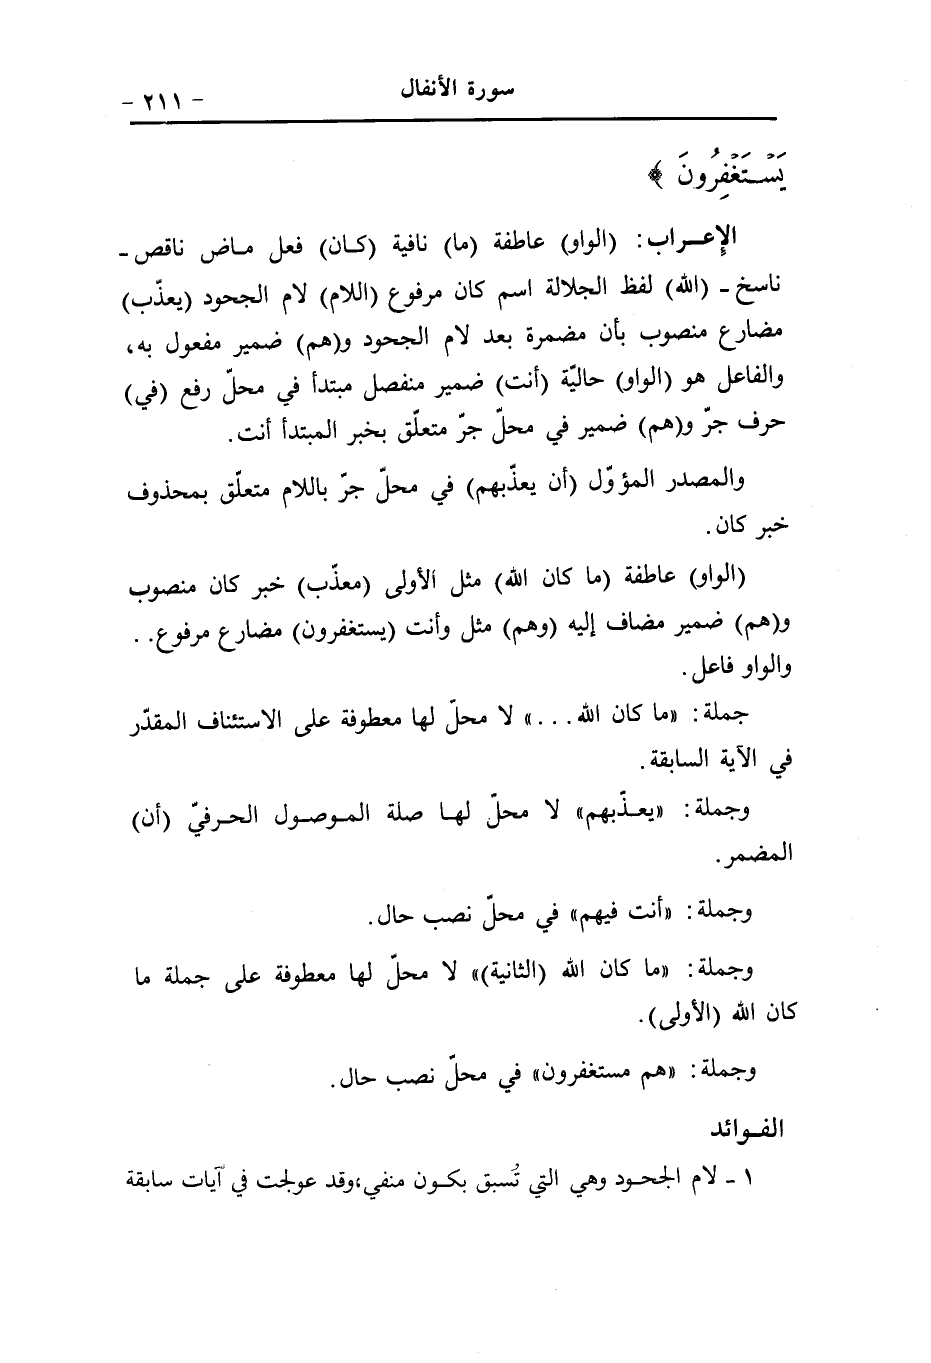 سورة الأنفال
- ٢١١ -
يَسْتَغْفِرُونَ ﴾
الإعـراب: (الواو) عاطفة (ما) نافية (كـان) فعل مـاض ناقص -
ناسخ - (الله) لفظ الجلالة اسم كان مرفوع (اللام) لام الجحود (يعذّب)
مضارع منصوب بأن مضمرة بعد لام الجحود و(هم) ضمير مفعول به،
والفاعل هو (الواو) حاليّة (أنت) ضمير منفصل مبتدأ في محلّ رفع (في)
حرف جرّ و(هم) ضمير في محلّ جرّ متعلّق بخبر المبتدأ أنت.
والمصدر المؤوّل (أن يعذّبهم) في محلّ جرّ باللام متعلّق بمحذوف
خبر كان.
(الواو) عاطفة (ما كان الله) مثل الأولى (معذّب) خبر كان منصوب
و(هم) ضمير مضاف إليه (وهم) مثل وأنت (يستغفرون) مضارع مرفوع. .
والواو فاعل.
جملة: «ما كان الله. . .» لا محلّ لها معطوفة على الاستئناف المقدّر
في الآية السابقة.
وجملة: «يعـذّبهم» لا محلّ لهـا صلة المـوصـول الحـرفيّ (أن)
المضمر.
وجملة: «أنت فيهم» في محلّ نصب حال.
وجملة: «ما كان الله (الثانية)» لا محلّ لها معطوفة على جملة ما
كان الله (الأولى).
وجملة: «هم مستغفرون» في محلّ نصب حال.
الفـوائد
١ - لام الجحـود وهي التي تُسبق بكـون منفي، وقد عولجت في آيات سابقة